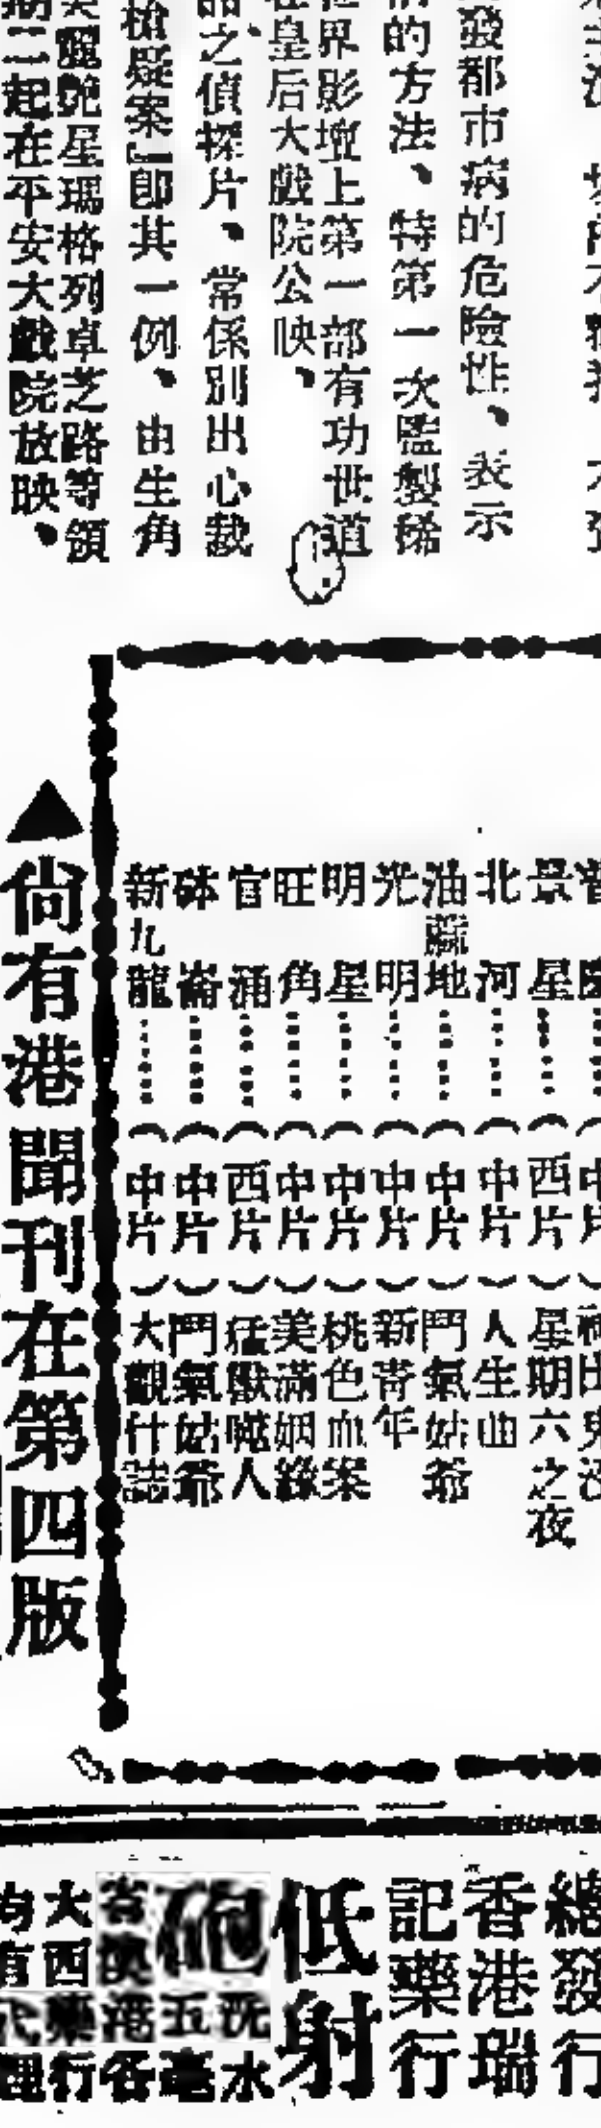 發都市病的危險性、表示
的方法、特第一次監製稀
世界影壇上第一部有功世道
在皇后大戲院公映、
品之偵探片、常係別出心裁
槍疑案」即其一例、由生角
美麗艷星瑪格列卓芝路等領
期二起在平安大戲院放映、
景星⋯⋯(西片)星期六之夜
北河⋯⋯(中片)人生曲
油蔴地⋯⋯(中片)鬥氣姑爺
光明⋯⋯(中片)新青年
明星⋯⋯(中片)桃色血案
旺角⋯⋯(中片)美滿姻緣
官涌⋯⋯(西片)猛獸噬人
砵崙⋯⋯(中片)鬥氣姑爺
新九龍⋯⋯(中片)大觀什誌
▲尙有港聞刊在第四版
總發行
香港瑞
記藥行
低射
砲
洗水
五毫
省澳港各
大西藥行
均有代理